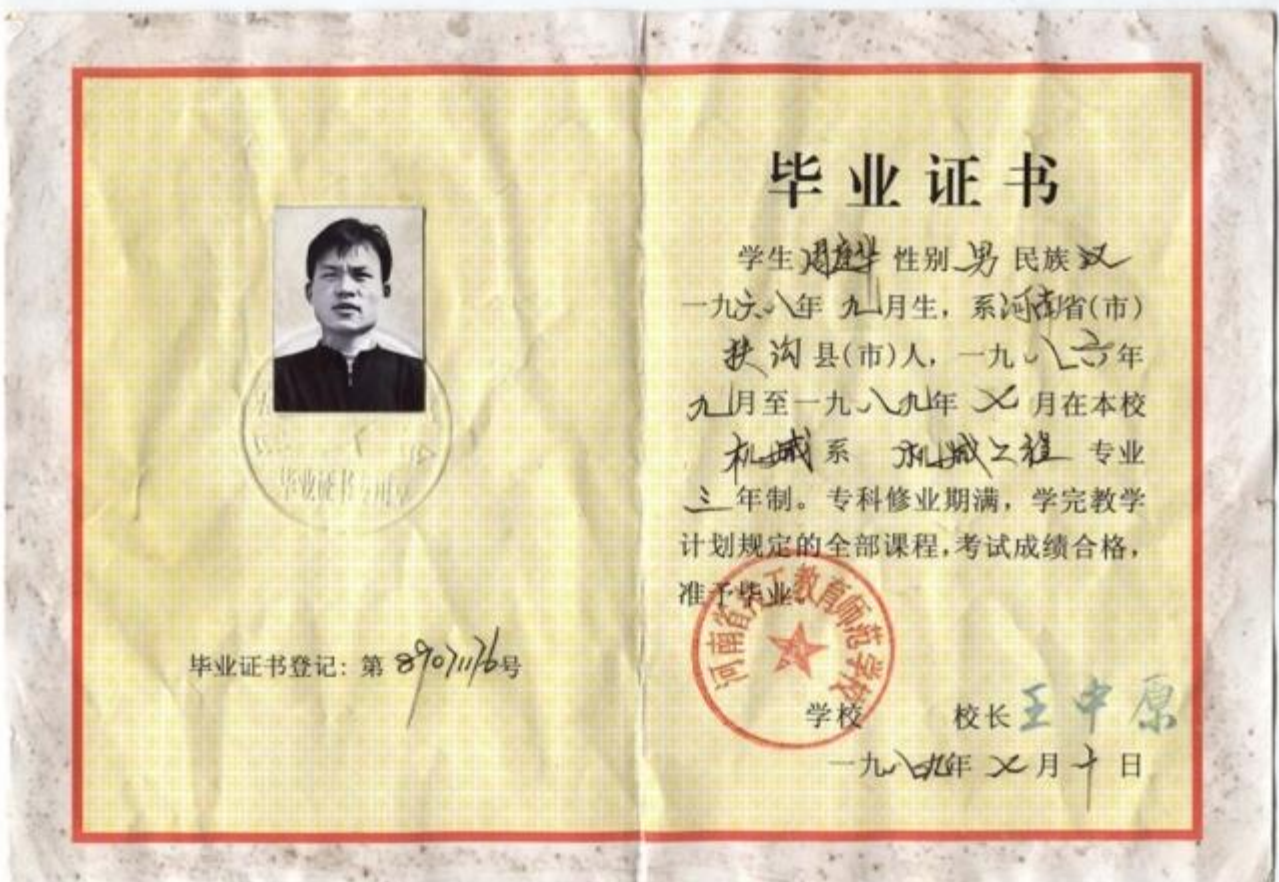 毕业证书用
毕业证书登记：第89071176号
毕业证书
学生周建华 性别 男 民族 汉
一九六八年 九月生，系河南省(市)
扶沟县(市)人，一九八六年
九月至一九八九年 七 月在本校
机械系 机械工程 专业
三年制。专科修业期满，学完教学
计划规定的全部课程，考试成绩合格，
准予毕业。
河南省 工教育师范学校
学校 校长王中原
一九八九年 七 月 十 日